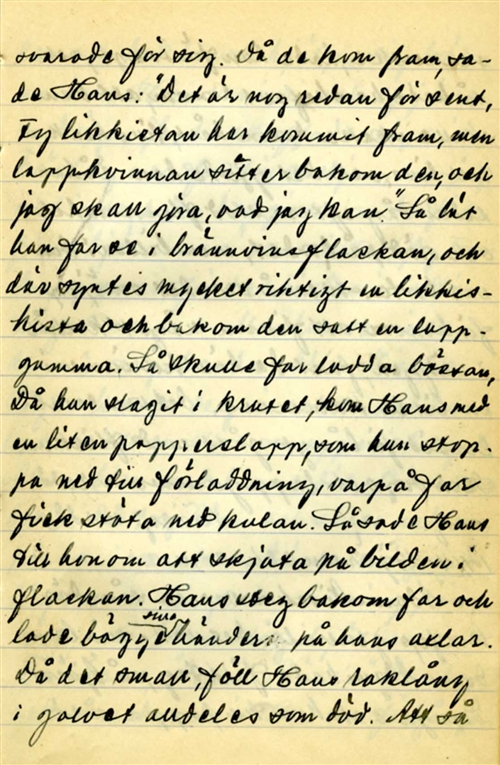 svarade för sig. Då de kom fram, sa-
de Hans: "Det är nog redan för sent,
Ty likkistan har kommit fram, men
lappkvinnan sitter bakom den, och
jag skall göra, vad jag kan." Så lät
han far se i brännvinsflaskan, och
där syntes mycket riktigt en likkis-
kista och bakom den satt en lapp-
gumma. Så skulle far ladda bössan,
Då han slagit i krutet, kom Hans med
en liten papperslapp, som han stop-
pa ned till förladdning, varpå far
fick stöta ned kulan. Så sade Hans
till honom att skjuta på bilden i
flaskan. Hans steg bakom far och
lade bägge sina händer på hans axlar.
Då det small, föll Hans raklång
i golvet alldeles som död. Att så